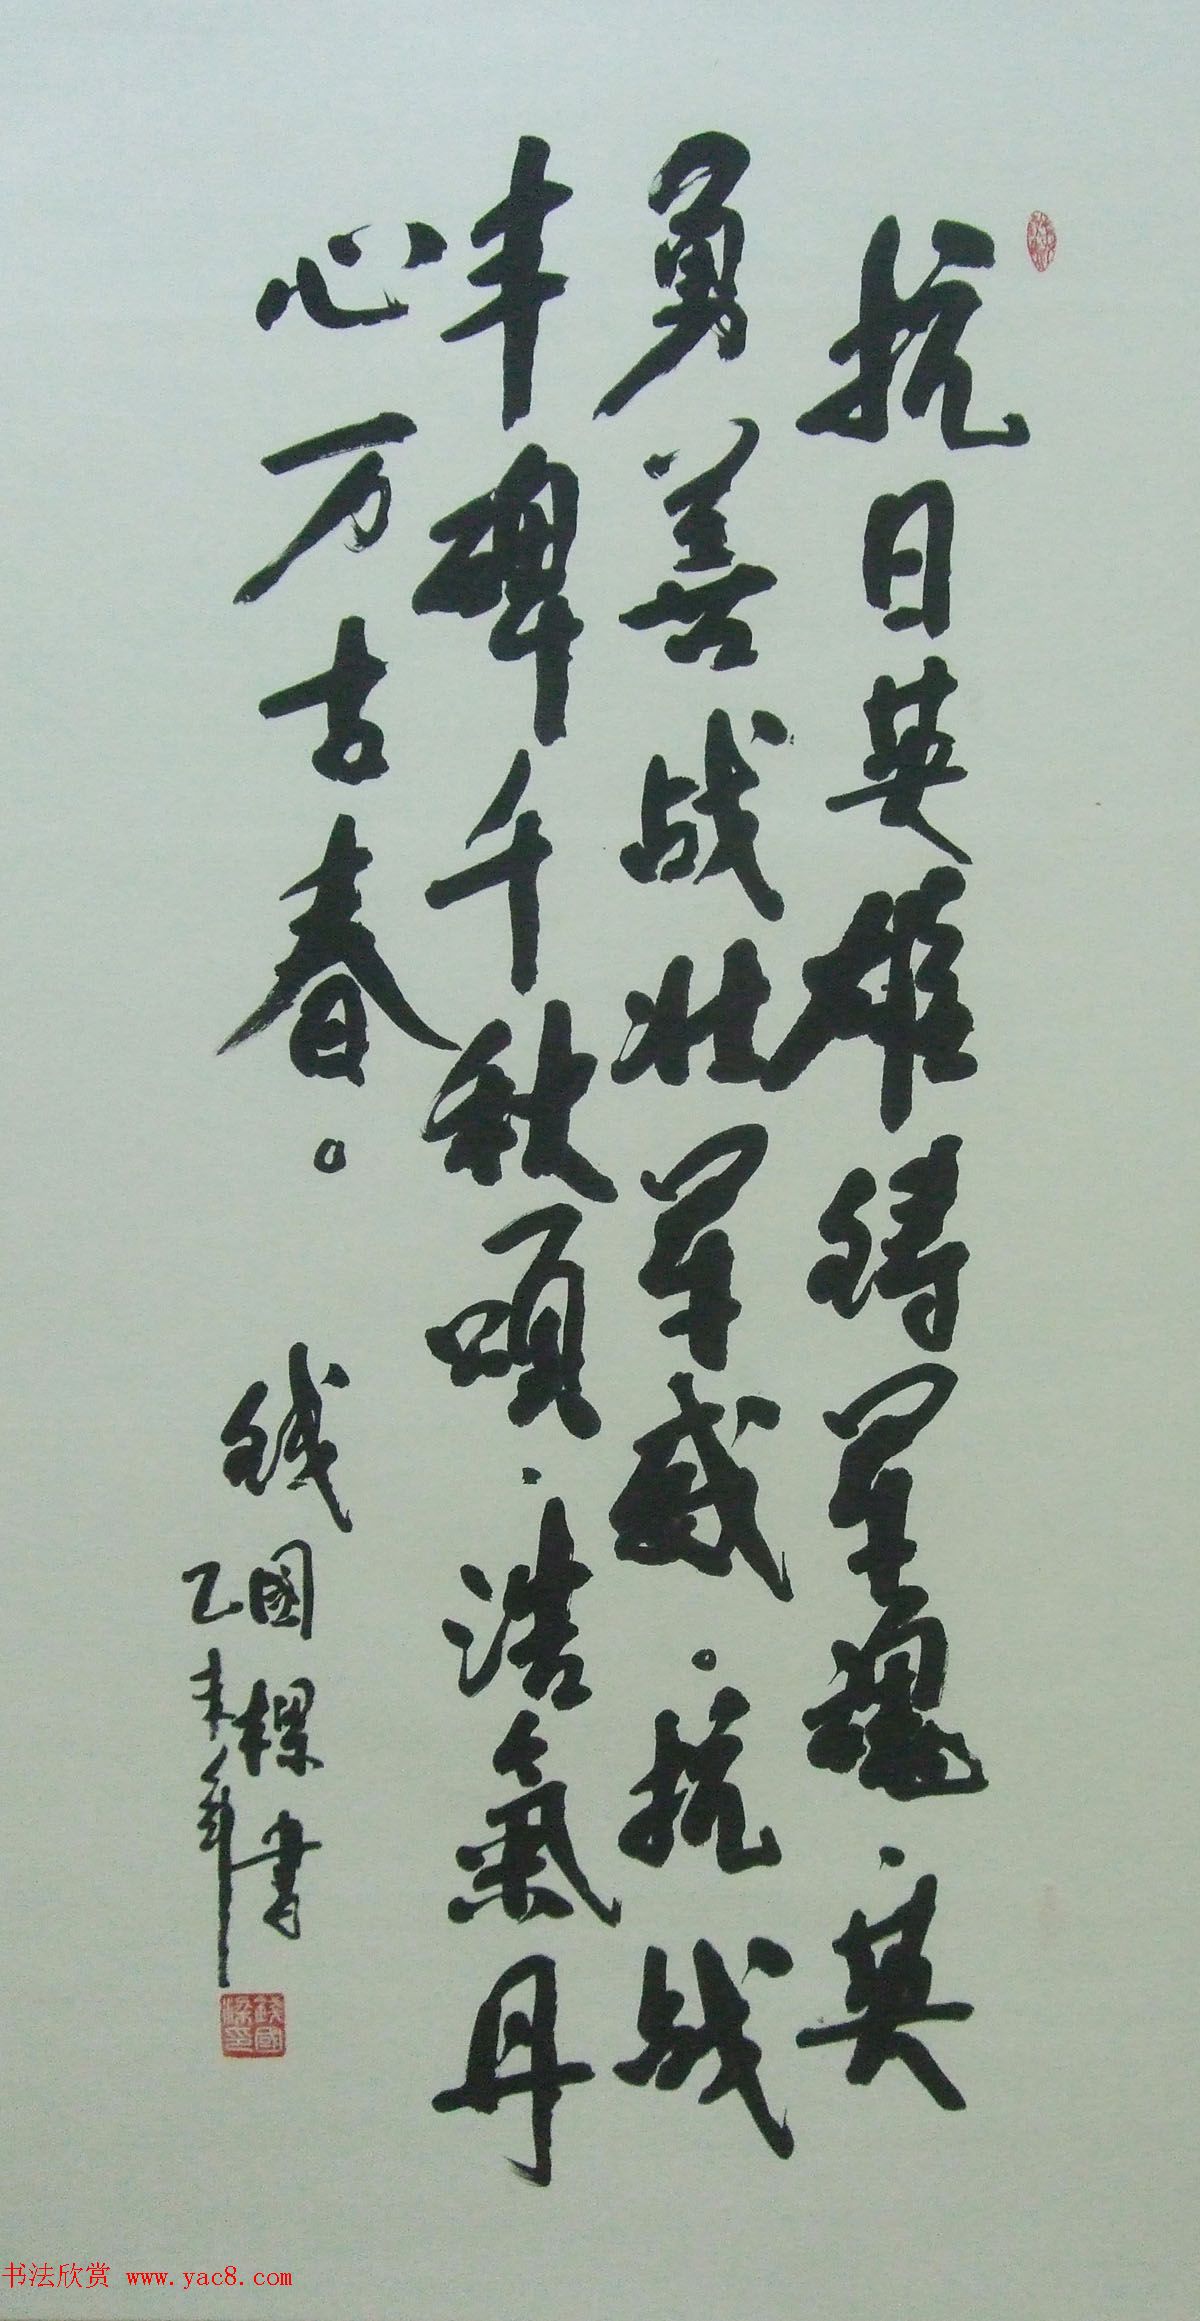 抗日英雄铸军魂.英
勇善战壮军威。抗战
丰碑千秋颂.浩氣丹
心万古春。
钱國樑書
乙未年
錢國
樑印
书法欣赏 www.yac8.com